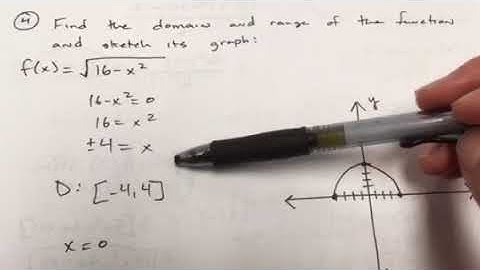 ④ Find the domain and range of the function
and sketch its graph:
f(x) = √16 - x²
16 - x² = 0
16 = x²
±4 = x
D: [-4, 4]
x = 0
y